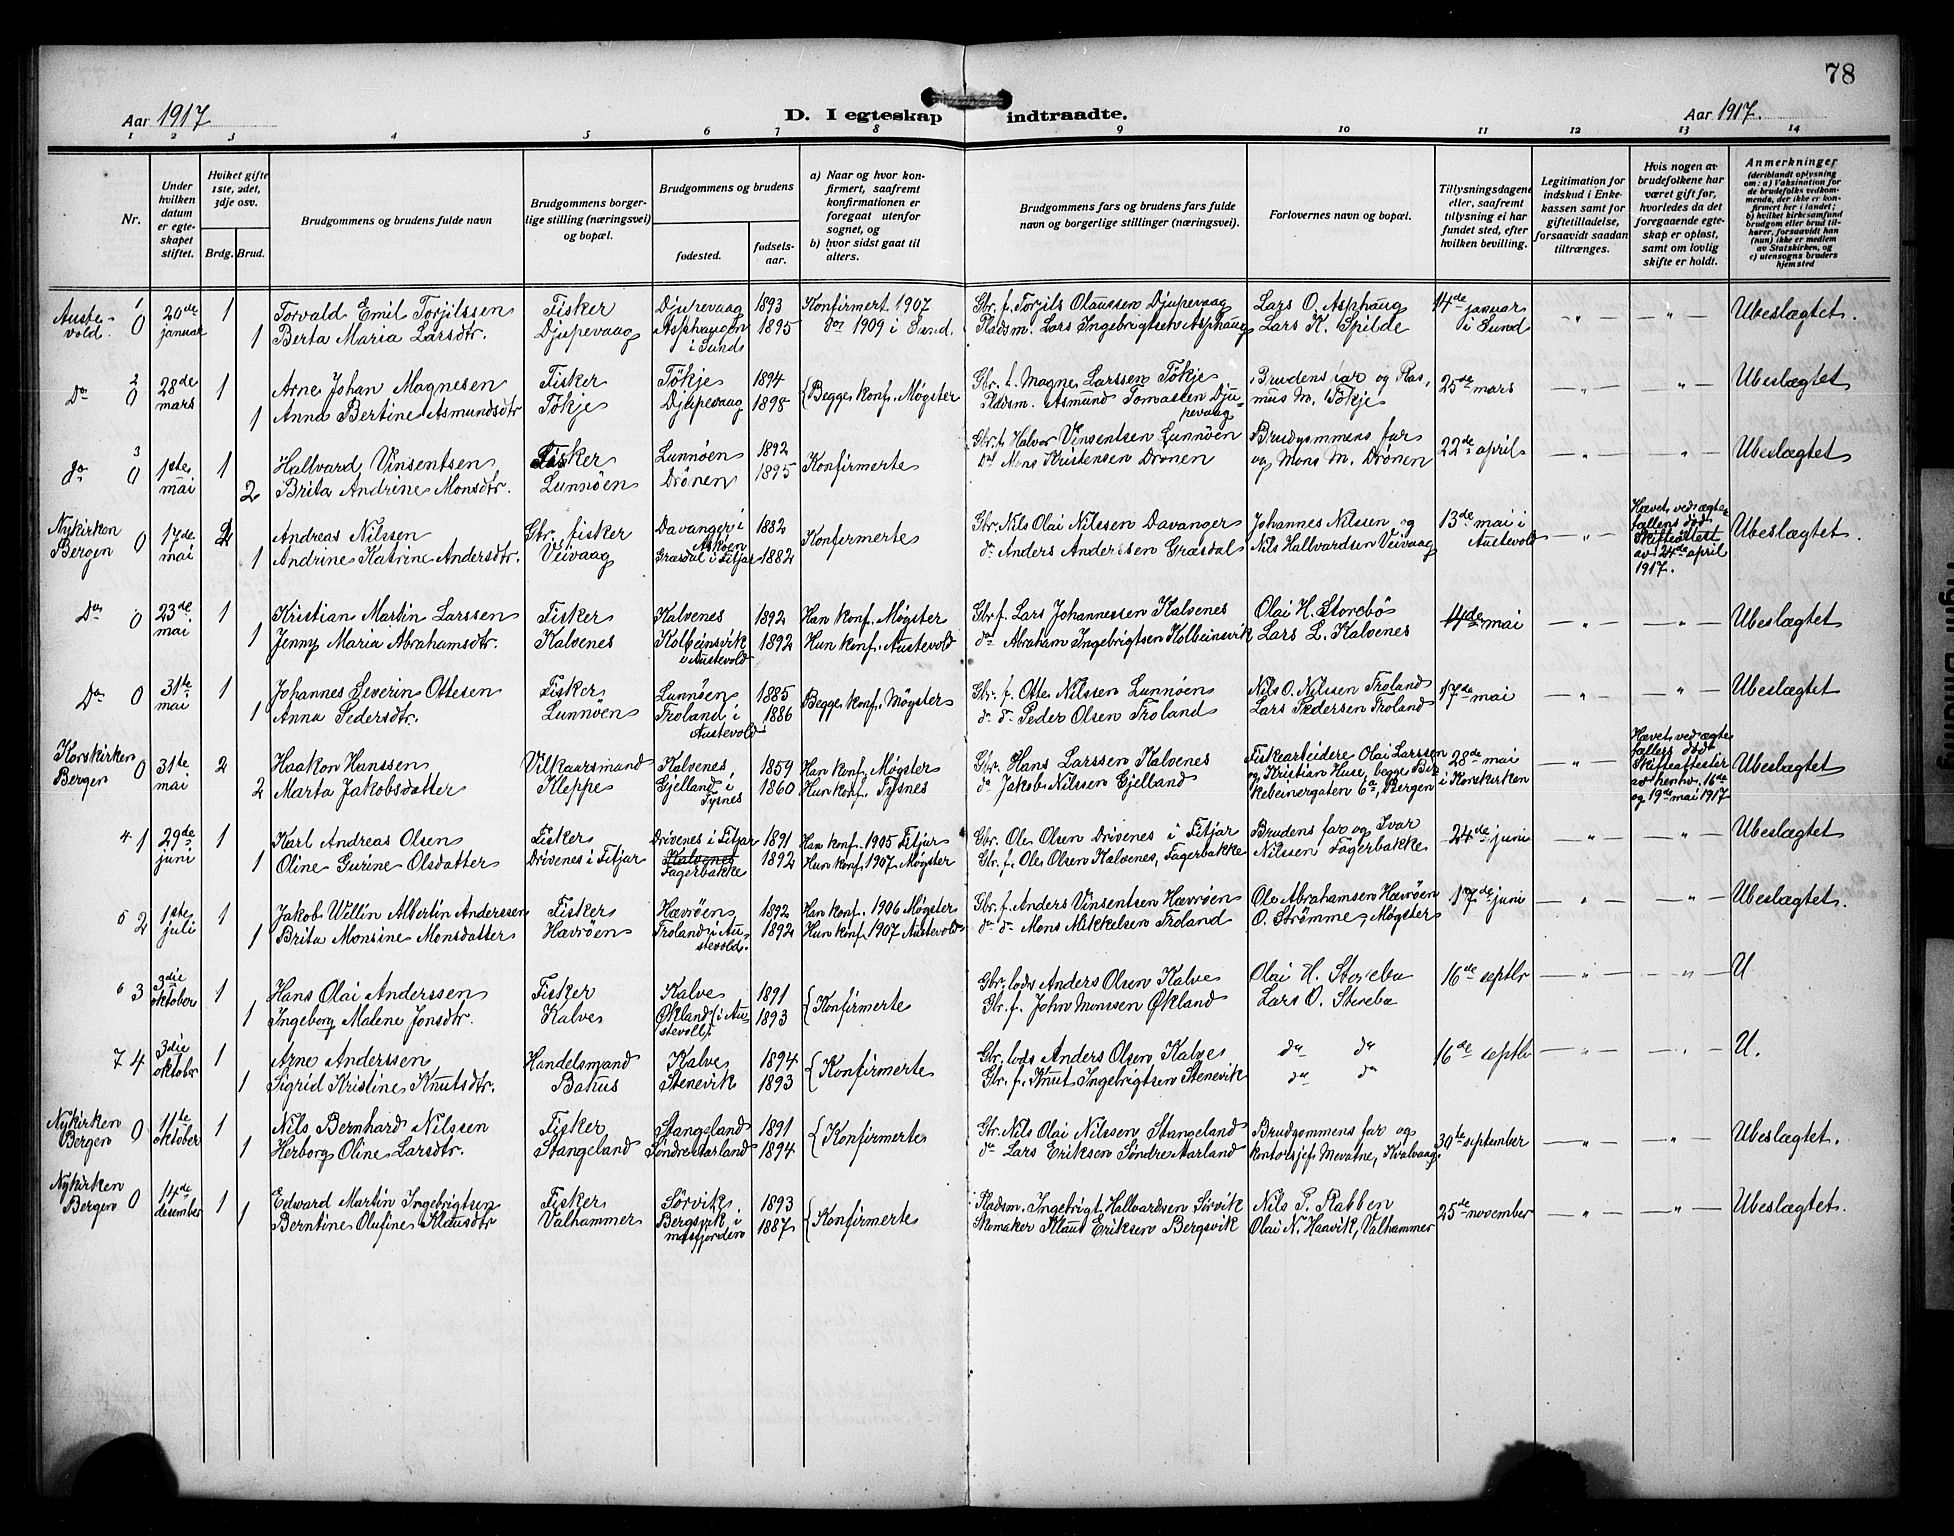 78
Aar 1917
D. I egteskap indtraadte.
Aar 1917.
1 2 3 4 5 6 7 8 9 10 11 12 13 14
Nr.
Under hvilken datum er egteskapet stiftet.
Hviket gifte 1ste, 2det, 3dje osv.
Brdg. Brud.
Brudgommens og brudens fulde navn
Brudgommens borgerlige stilling (næringsvei) og bopæl.
Brudgommens og brudens
fødested.
fødselsaar.
a) Naar og hvor konfirmert, saafremt konfirmationen er foregaat utenfor sognet, og
b) hvor sidst gaat til alters.
Brudgommens fars og brudens fars fulde navn og borgerlige stillinger (næringsvei).
Forlovernes navn og bopæl.
Tillysningsdagene eller, saafremt tillysning ei har fundet sted, efter hvilken bevilling.
Legitimation for indskud i Enkekassen samt for giftetilladelse, forsaavidt saadan tiltrænges.
Hvis nogen av brudefolkene har været gift før, hvorledes da det foregaaende egteskap er opløst, samt om lovlig skifte er holdt.
Anmerkninger
(deriblandt oplysning om: a) Vaksination for de brudefolks vedkommende, der ikke er konfirmert her i landet; b) hvilket kirkesamfund brudgom eller brud tilhører, forsaavidt han (hun) ikke er medlem av Statskirken, og c) utensogns bruders hjemsted
Austevold. 1 0 20de januar 1 Torvald Emil Torjilssen Fisker Djupevaag 1893 Konfirmert 1907 Gbr. f. Torjils Olaussen Djupevaag Lars O. Asphaug 14de januar — " — — " — Ubeslægtet.
1 Berta Maria Larsdtr. Djupevaag Asphaugen i Sund 1895 do 1909 i Sund. Pladsm. Lars Ingebrigtsen Asphaug Lars K. Spilde i Sund
Do 2 0 28de mars 1 Arne Johan Magnesen Fisker Tökje 1894 Begge konf. Møgster Gbr. f. Magne Larssen Tökje Brudens far og Ras- 25de mars — " — " Ubeslægtet
1 Anna Bertine Asmundsdtr Tökje Djupevaag 1898 Pladsm. Asmund Tomassen Djupevaag mus M. Tökje
do 3 0 1ste mai 1 Hallvard Vinsentsen Fisker Lunnöen 1892 Konfirmerte Gbr. f. Halvor Vinsentsen Lunnöen Brudgommens far 22de april — " — " Ubeslægtet
2 Brita Andrine Monsdtr. Lunnöen Drönen 1895 do Mons Kristensen Drönen og Mons M. Drönen
Nykirken Bergen 0 17de mai 2 Andreas Nilssen Gbr. fisker Davanger i Askøen 1882 Konfirmerte Gbr. Nils Olai Nilssen Davanger Johannes Nilsen og 13de mai i Austevold — " — Hævet ved ægtefællens död Skifteattest av 24de april 1917. Ubeslægtet.
1 Andrine Katrine Andersdtr. Veivaag Græsdal i Fitjar 1882 do Anders Anderssen Græsdal Nils Hallvardsen Veivaag
Do 0 23de mai 1 Kristian Martin Larssen Fisker Kalvenes 1892 Han konf. Møgster Gbr. f. Lars Johannessen Kalvenes Olai H. Storebö mai — " — — " — Ubeslægtet
1 Jenny Maria Abrahamsdtr. Kalvenes Kolbeinsvik i Austevold 1892 Hun konf. Austevold do Abraham Ingebrigtsen Kolbeinsvik Lars L. Kalvenes
Do 0 31te mai 1 Johannes Severin Ottesen Fisker Lunnöen 1885 Begge konf. Møgster Gbr. f. Otte Nilssen Lunnöen Nils O. Nilssen Troland 17de mai — " — " Ubeslægtet
1 Anna Pedersdtr. Lunnöen Troland i Austevold 1886 do do Peder Olsen Troland Lars Pedersen Troland
Korskirken Bergen 0 31te mai 2 Haakon Hanssen Vilkaarsmand Kalvenes 1859 Han konf. Møgster Gbr. Hans Larssen Kalvenes Fiskearbeidere Olai Larssen og Kristian Huse, begge Birkebeinergaten 6a, Bergen 28de mai i Korskirken — " — Hævet ved ægtefællers död Skifteattester av henhv. 16de og 19de mai 1917 Ubeslægtet
2 Marta Jakobsdatter Kleppe Gjelland i Tysnes 1860 Hun konf. Tysnes do Jakob Nilssen Gjelland
4 1 29de juni 1 Karl Andreas Olsen Fisker Drivenes i Fitjar 1891 Han konf. 1905 Fitjar Gbr. Ole Olsen Drivenes i Fitjar Brudens far og Ivar 24de juni — " — — " — Ubeslægtet
1 Oline Gurine Olsdatter Drivenes i Fitjar Kalvenes Fagerbakke 1892 Hun konf. 1907 Møgster Gbr. f. Ole Olsen Kalvenes, Fagerbakke Nilssen Fagerbakke
5 2 1ste juli 1 Jakob Willin Albertin Anderssen Fisker Hævröen 1892 Han konf. 1906 Møgster Gbr. f. Anders Vinsentsen Hævröen Ole Abrahamsen Hævröen 17de juni — " — " Ubeslægtet.
1 Brita Monsine Monsdatter Hævröen Troland i Austevold. 1892 Hun konf. 1907 Austevold do do Mons Mikkelsen Troland O. Strömme, Møgster
6 3 3die oktober 1 Hans Olai Anderssen Fisker Kalve 1891 Konfirmerte Gbr. lods Anders Olsen Kalve Olai H. Storebø 16de septbr — " — — " — U
1 Ingeborg Malene Jonsdtr. Kalve Økland (i Austevoll) 1893 Gbr. f. John Monssen Økland Lars O. Storebø
7 4 3die oktober 1 Arne Anderssen Handelsmand Kalve 1894 Konfirmerte Gbr. lods Anders Olsen Kalve do do 16de septbr — " — — " — U.
1 Sigrid Kristine Knutsdtr. Bakus Stenevik 1893 Gbr. f. Knut Ingebrigtsen Stenevik do do
Nykirken Bergen 0 11te oktober 1 Nils Bernhard Nilssen Fisker Stangeland 1891 Konfirmerte Gbr. Nils Olai Nilssen Stangeland Brudgommens far og 30te september — " — — " — Ubeslægtet.
1 Herborg Oline Larsdtr. Stangeland Söndre Aarland 1894 do Lars Eriksen Söndre Aarland kontorsjef Mevatne, Kvalvaag
Nykirken Bergen 0 14de desember 1 Edvard Martin Ingebrigtsen Fisker Sörvik 1893 Konfirmerte Pladsm. Ingebrigt Hallvardsen Sörvik Nils P. Rabben 25de november — " — — " — Ubeslægtet.
1 Berntine Olufine Klausdtr Valhammer Bergsvik i Masfjorden 1887 Skomaker Klaus Eriksen Bergsvik Olai N. Haavik, Valhammer